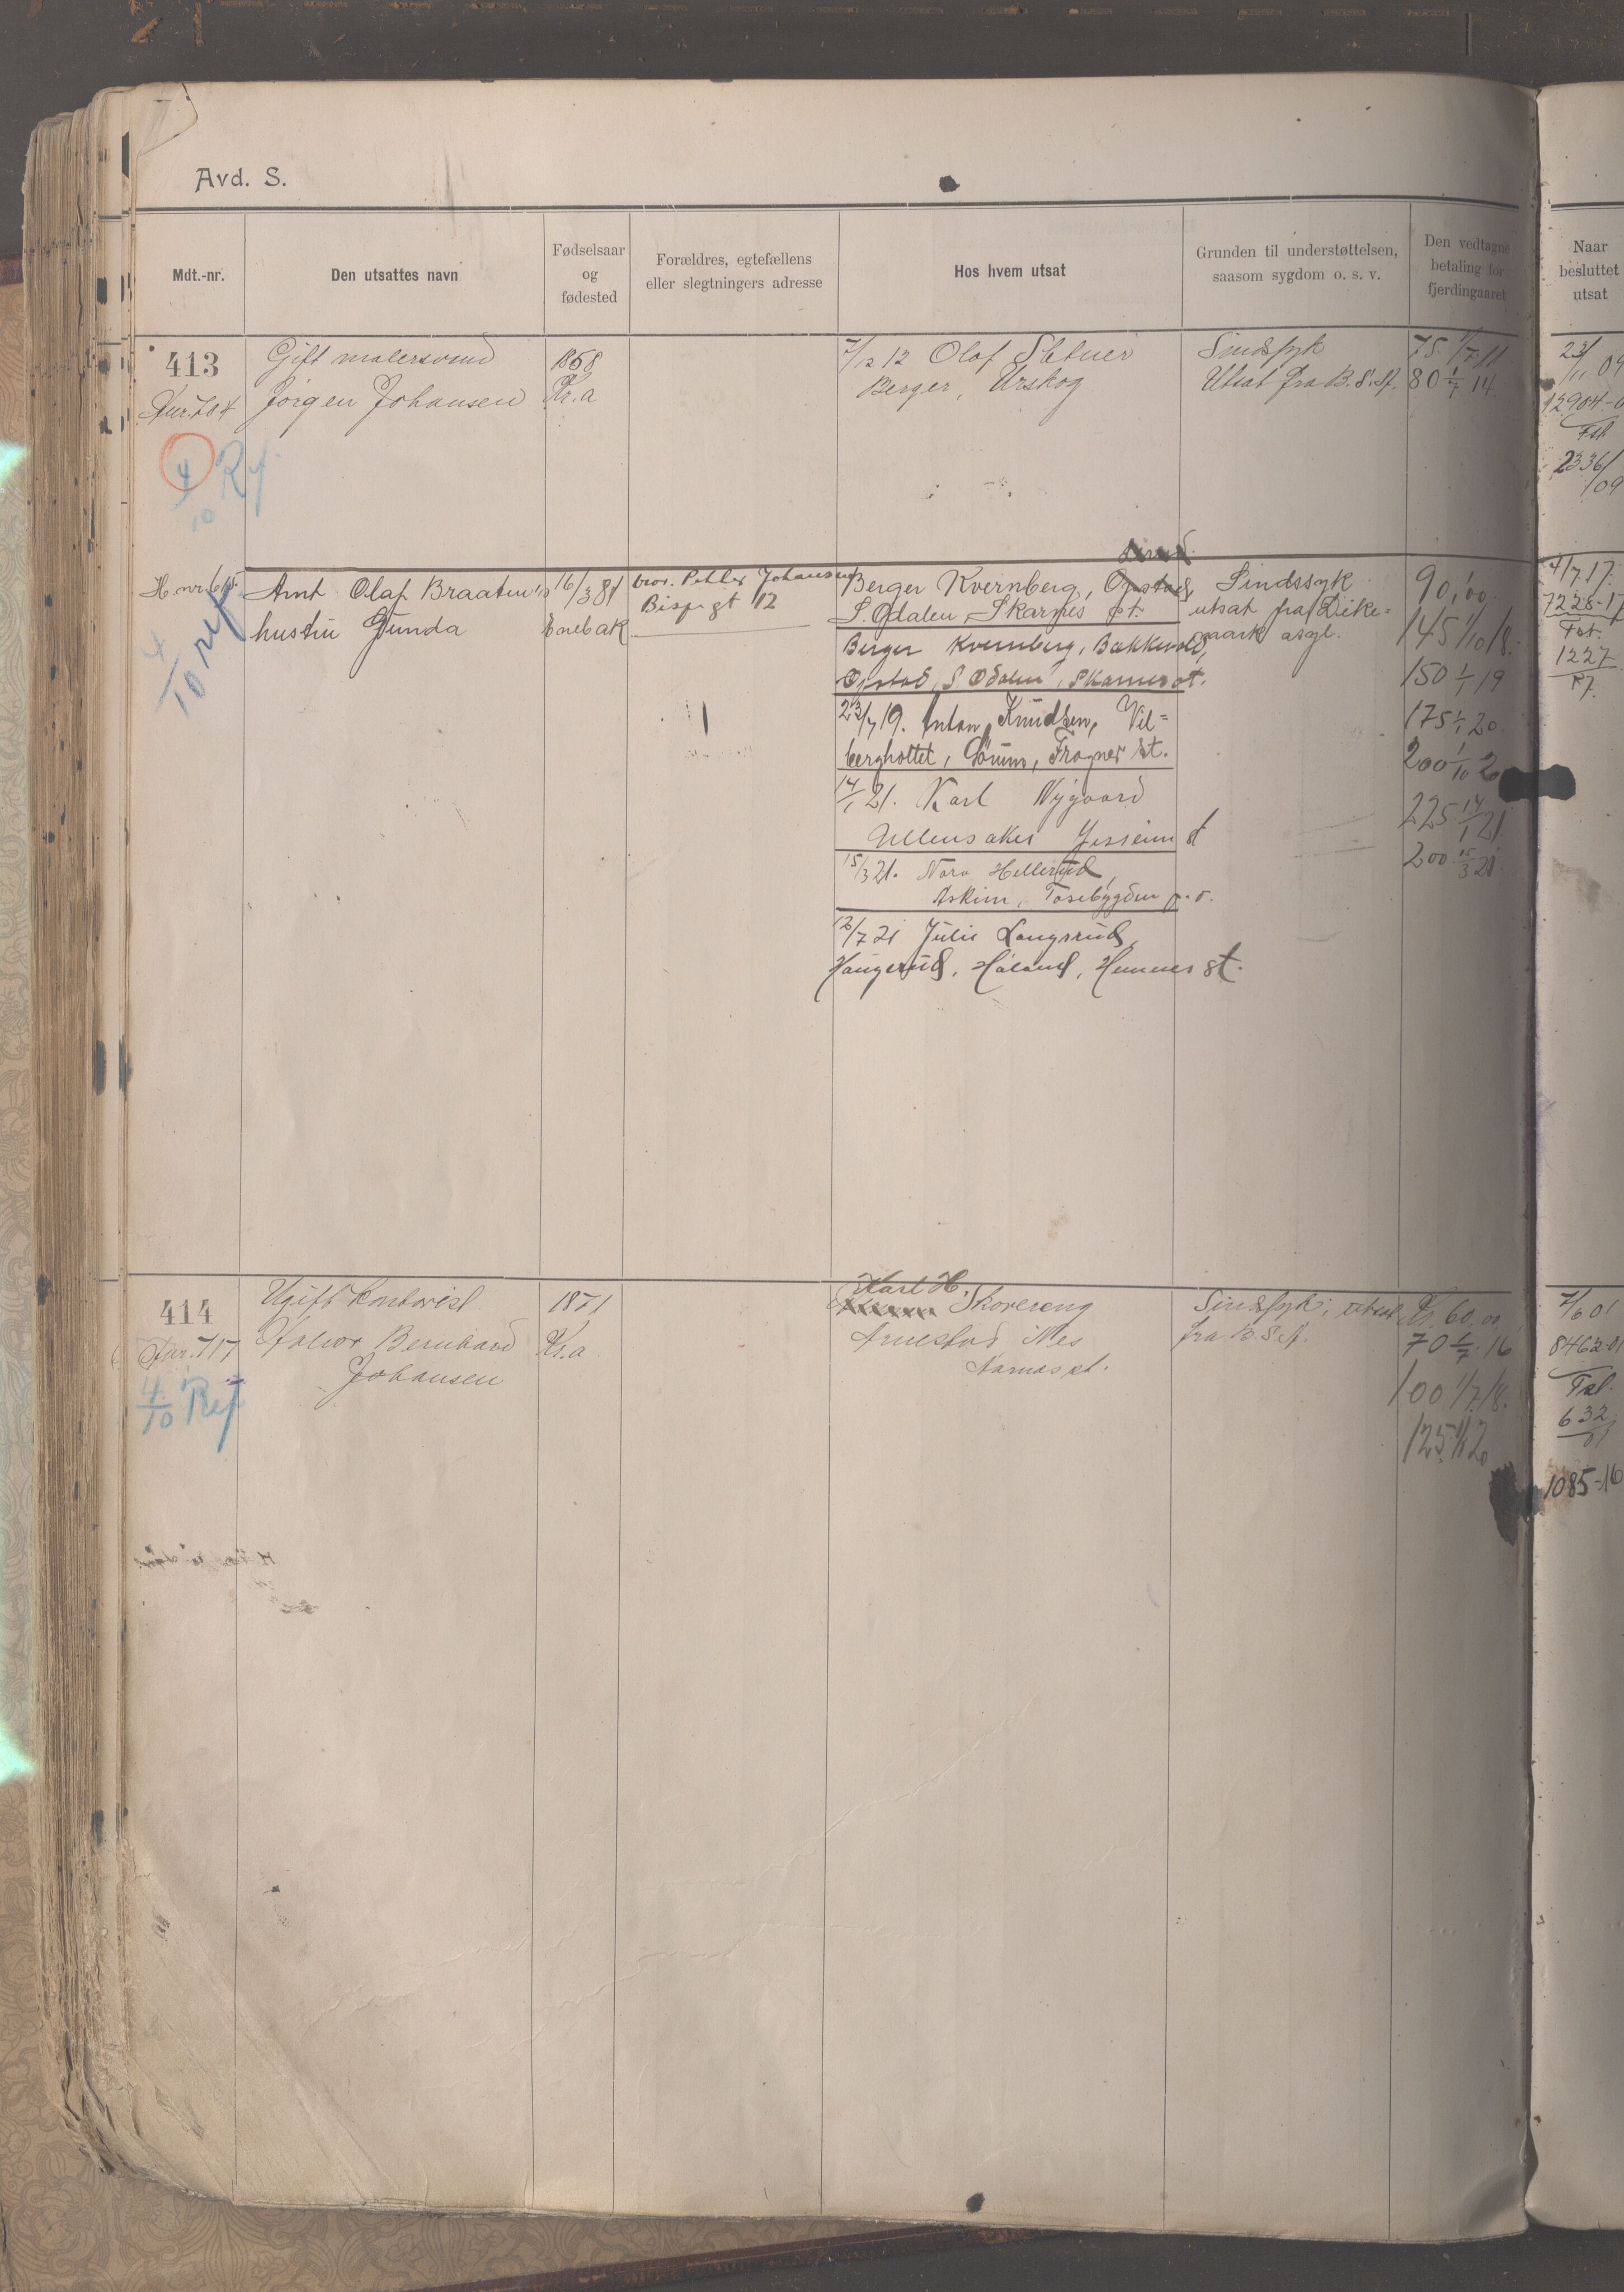 Avd. S.
Mdt.-nr.
Den utsattes navn
Fødselsaar
og
fødested
Forældres, egtefællens
eller slegtningers adresse
Hos hvem utsat
Grunden til understøttelsen,
saasom sygdom o. s. v.
Den vedtagne
betaling for
fjerdingaaret
Naar
besluttet
utsat
413
Gift malersvend
Jörgen Johansen
1868
Kr.a
7/12 12 Olaf
Berger, Urskog
Sindssyk
Utsat fra B. S. A.
75 1/7 11
80 1/7 14
23/11 09
12904-0
Fsl
2336/
/09
4/10 Ref
H. nr. 615.
4/10 ref
Arnt Olaf Braaten's
hustru Gunda
16/3 81
Enebak
bror. Petter Johansen
Bispegt 12
Berger Kvernberg, Opstad,
S. Odalen, Skarnes st.
Berger Kvernberg, Bakkevold,
Opstad, S. Odalen, Skarnes st.
23/7 19. Anton Knudsen, Vil=
berghottet, Sørum, Frogner st.
14/1 21. Karl Nygaard
Ullensaker Jessheim st
15/3 21. Nora Hellerud,
Askim, Tosebygden p.o.
12/7 21 Julie Langsrud,
Haugerud, Høland, Hemnes st.
Sindssyk
utsat fra Dike=
maark asyl.
90,00.
145 1/10 18.
150 1/1 19
175 1/1 20.
200 1/10 20
225 14/1 21
200 15/3 21
4/7 17.
7228-17
Fst.
1227
17.
414
4/10 Ref
Ugift kontorist
Halvor Bernhard
Johansen
1871
Kr.a
Karl H.
Skovereng
Arnestad Nes
Aarnes st.
Sindssyk, utsat
fra B. S. A.
Kr. 60.00
70 1/7 16
100 1/7 18.
125 1/1 20
7/6 01
8462-01
Fsl.
632
01
1085-16